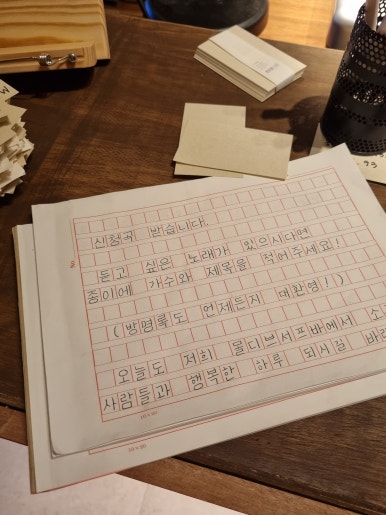 신청곡 받습니다.
듣고 싶은 노래가 있으시다면
종이에 가수와 제목을 적어주세요!
(방명록도 언제든지 대환영!)
오늘도 저희 몰디브서프바에서 소
사람들과 행복한 하루 되시길 바라